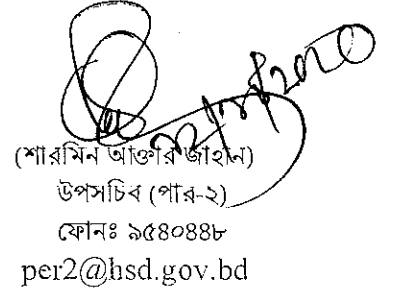 (শারমিন আক্তার জাহান)
উপসচিব (পার-২)
ফোনঃ ৯৫৪০৪৪৮
per2@hsd.gov.bd